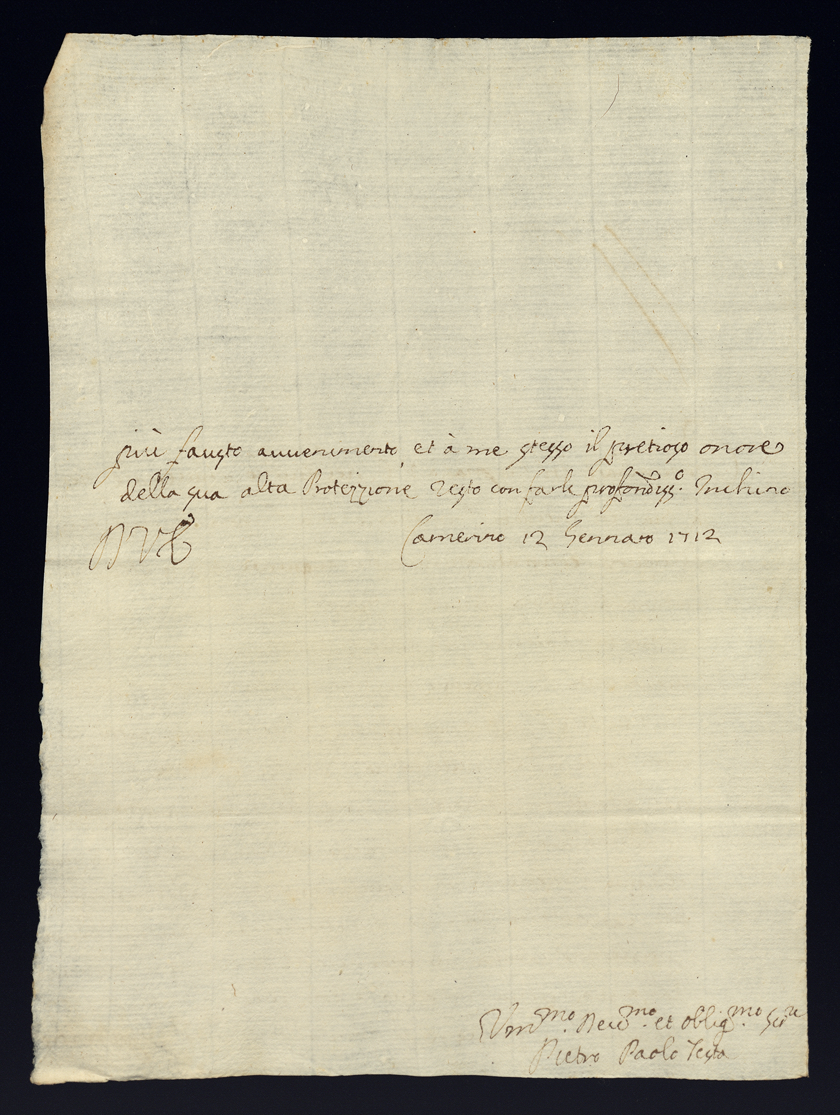 più fausto avvenimento et à me stesso il pretioso onore
della sua alta Protezzione resto con farle profondiss.º Inchino
DVE
Camerino 12 Gennaro 1712
Um.mo Dev.mo et Oblig.mo Ser.re
Pietro Paolo Testa